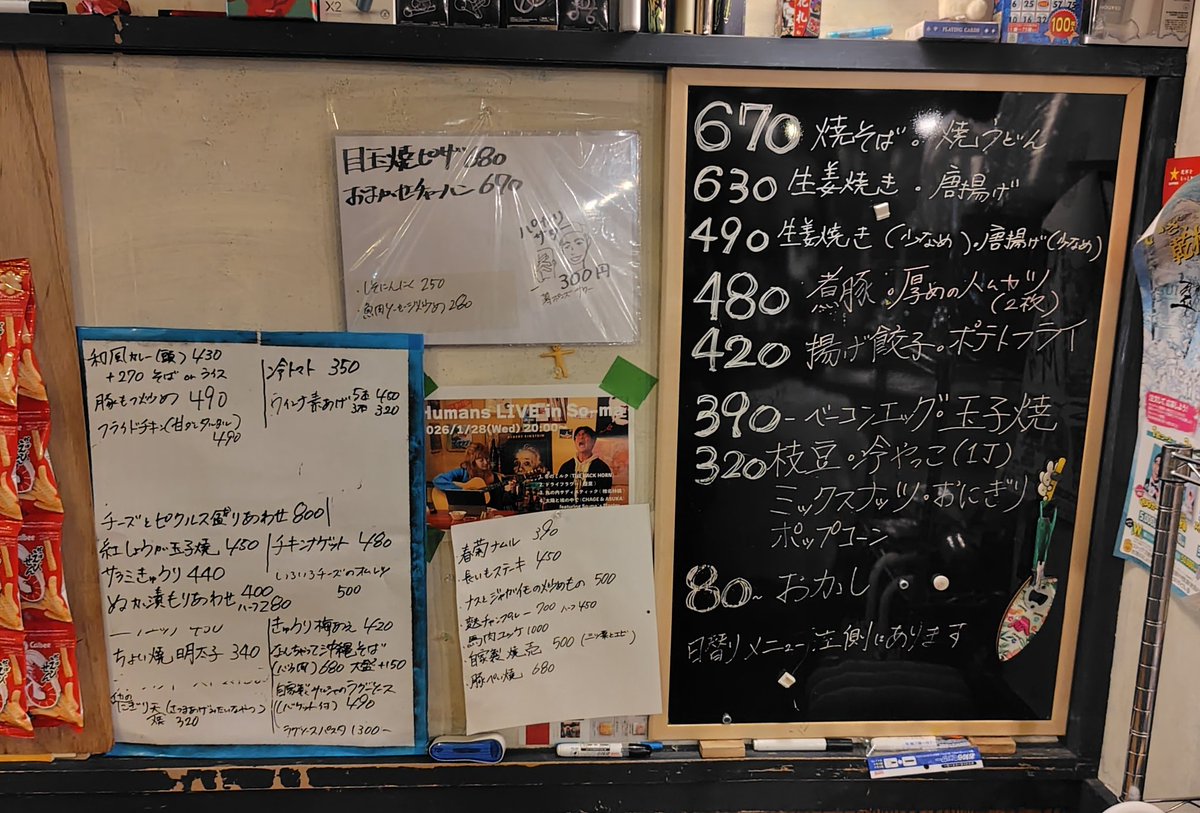 目玉焼ピザ 680
おまかせチャーハン 670
300円
・しそにんにく 250
・魚肉ソーセージ炒め 280
和風カレー(頭) 430
+270 そば or ライス
豚もつ炒め 490
フライドチキン(甘ダレタルタル)
490
冷トマト 350
ウィンナ素あげ 5本 400
3本 320
チーズとピクルス盛りあわせ 800
紅しょうが玉子焼 450
サラミきゅうり 440
ぬか漬もりあわせ 400
ハーフ280
ちょい焼明太子 340
(さつまあげみたいなやつ)
320
チキンナゲット 480
いろいろチーズのオムレツ
500
きゅうり梅あえ 420
なんちゃって沖縄そば
(バラ肉) 680 大盛+150
自家製サルシッチャのラグーソース
(バケット付) 490
ラグソースパスタ 1300~
Humans LIVE in So-ma
2026/1/28(Wed) 20:00~
春菊ナムル 390
・長いもステーキ 450
・ナスとジャガイモの炒めもの 500
700 ハーフ 450
・馬肉ユッケ 1000
・自家製焼売 500 (三ツ葉とエビ)
・豚ぺい焼 680
670 焼そば・焼うどん
630 生姜焼き・唐揚げ
490 生姜焼き(少なめ)・唐揚げ(少なめ)
480 煮豚・厚めのハムカツ
(2枚)
420 揚げ餃子・ポテトフライ
390- ベーコンエッグ・玉子焼
320 枝豆・冷やっこ(1丁)
ミックスナッツ・おにぎり
ポップコーン
80~ おかし
日替りメニュー左側にあります
PLAYING CARDS
X2
花札
Calbee
Calbee